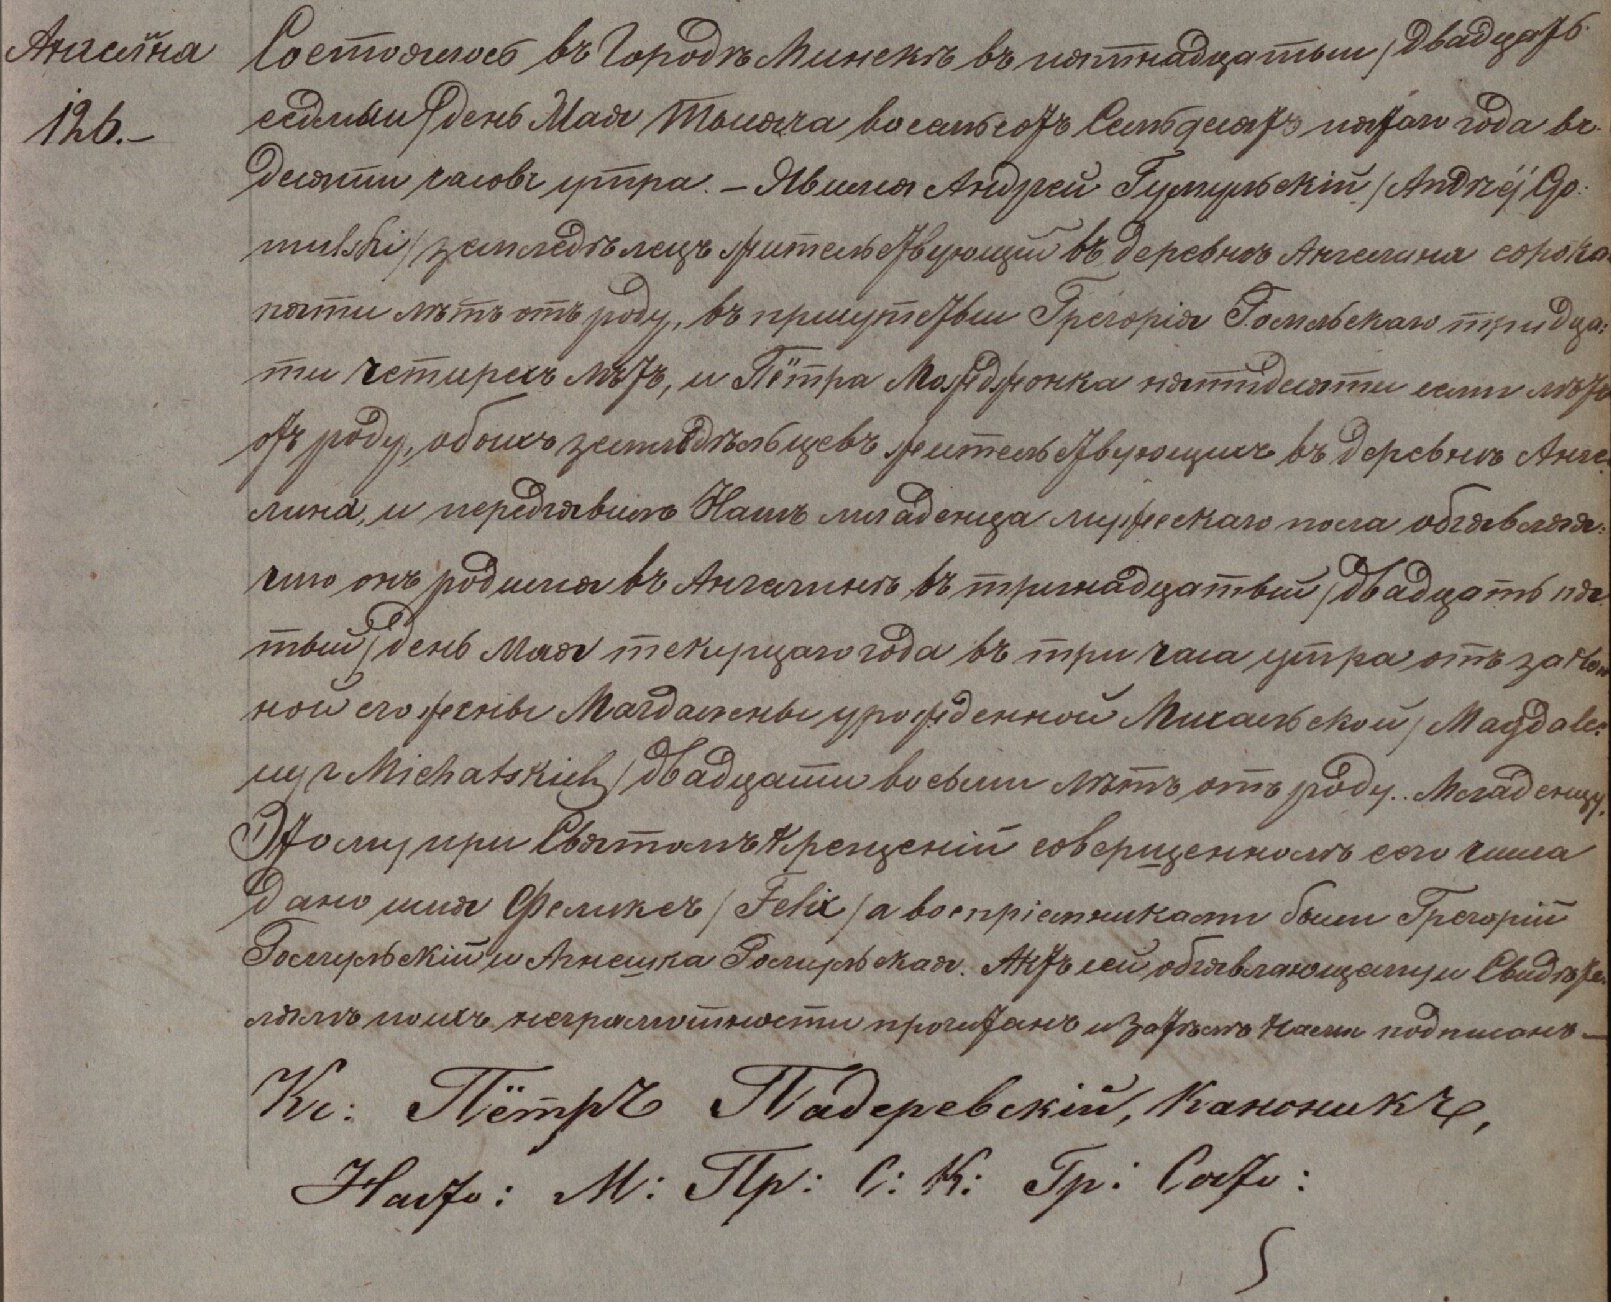 Ангелина
126.–
Состоялось въ Городѣ Минскѣ въ пятнадцатый / двадцать
седмый / день Мая Тысяча восемьсотъ Семьдесятъ пятаго года въ
десяти часовъ утра. – Явился Андрей Гумульскій / Andrzéj Go-
mulski / земледѣлецъ жительствующій въ деревнѣ Ангелина сорока
пяти лѣтъ отъ роду, въ присутствіи Грегорія Гомульскаго тридца=
ти четирехъ лѣтъ, и Пётра пятидесяти семи лѣтъ
отъ роду, обоихъ земледѣльцевъ жительствующихъ въ деревнѣ Анге=
лина, и передъявилъ Намъ младенца мужескаго пола объявляя=
что онъ родился въ Ангелинѣ въ тринадцатый / двадцать пя=
тый / день Мая текущаго года въ три часа утра отъ закон
ной его жены Магдалены урожденной Михальской / Magdale=
ny z Michalskich / двадцати восьми лѣтъ отъ роду. Младенцу
Этому при Святомъ Крещеній совершенномъ сего числа
дано имя Феликсъ / Felix / а воспріемниками были Грегорій
Гомульскій и Агнешка Гомульская. Актъ сей объявляющему и Свидѣте=
лямъ по ихъ неграмотности прочитанъ и затѣмъ Нами подписанъ –
Кс: Пётръ Падеревскій, Каноникъ,
Наст: М: Пр: С: К: Гр: Сост: